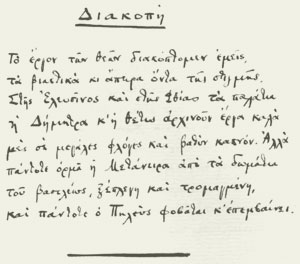 Διακοπή
Το έργον των θεών διακόπτομεν εμείς,
τα βιαστικά κι άπειρα όντα της στιγμής.
Στης Ελευσίνος και στης Φθίας τα παλάτια
η Δήμητρα κ' η Θέτις αρχινούν έργα καλά
μες σε μεγάλες φλόγες και βαθύν καπνόν. Αλλά
πάντοτε ορμά η Μετάνειρα από τα δωμάτια
του βασιλέως, ξέπλεγη και τρομαγμένη,
και πάντοτε ο Πηλεύς φοβάται κ' επεμβαίνει.